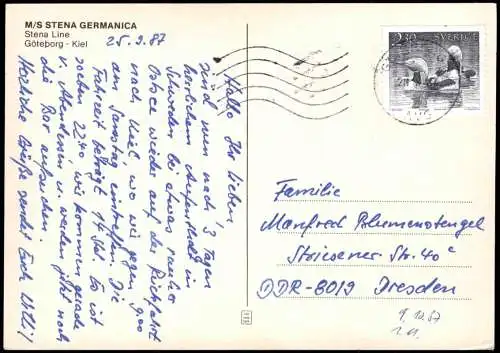 M/S STENA GERMANICA
Stena Line
Göteborg - Kiel
25.9.87
Hallo Ihr lieben
sind nun nach 3 Tagen
herrlichem Aufenthalt in
Schweden bei etwas
Ostsee wieder auf der Rückfahrt
nach Kiel wo wir gegen 9.00
am Samstag eintreffen. Die
Fahrzeit beträgt 14 Std. Es ist
soeben 22.40 wir kommen gerade
v. Abendessen u. werden jetzt noch
die Bar aufsuchen.
Herzliche Grüße sendet Euch Willi!
2.30 SVERIGE
Familie
Manfred Blumenstengel
Striesener Str. 40c
DDR-8019 Dresden
9.10.87